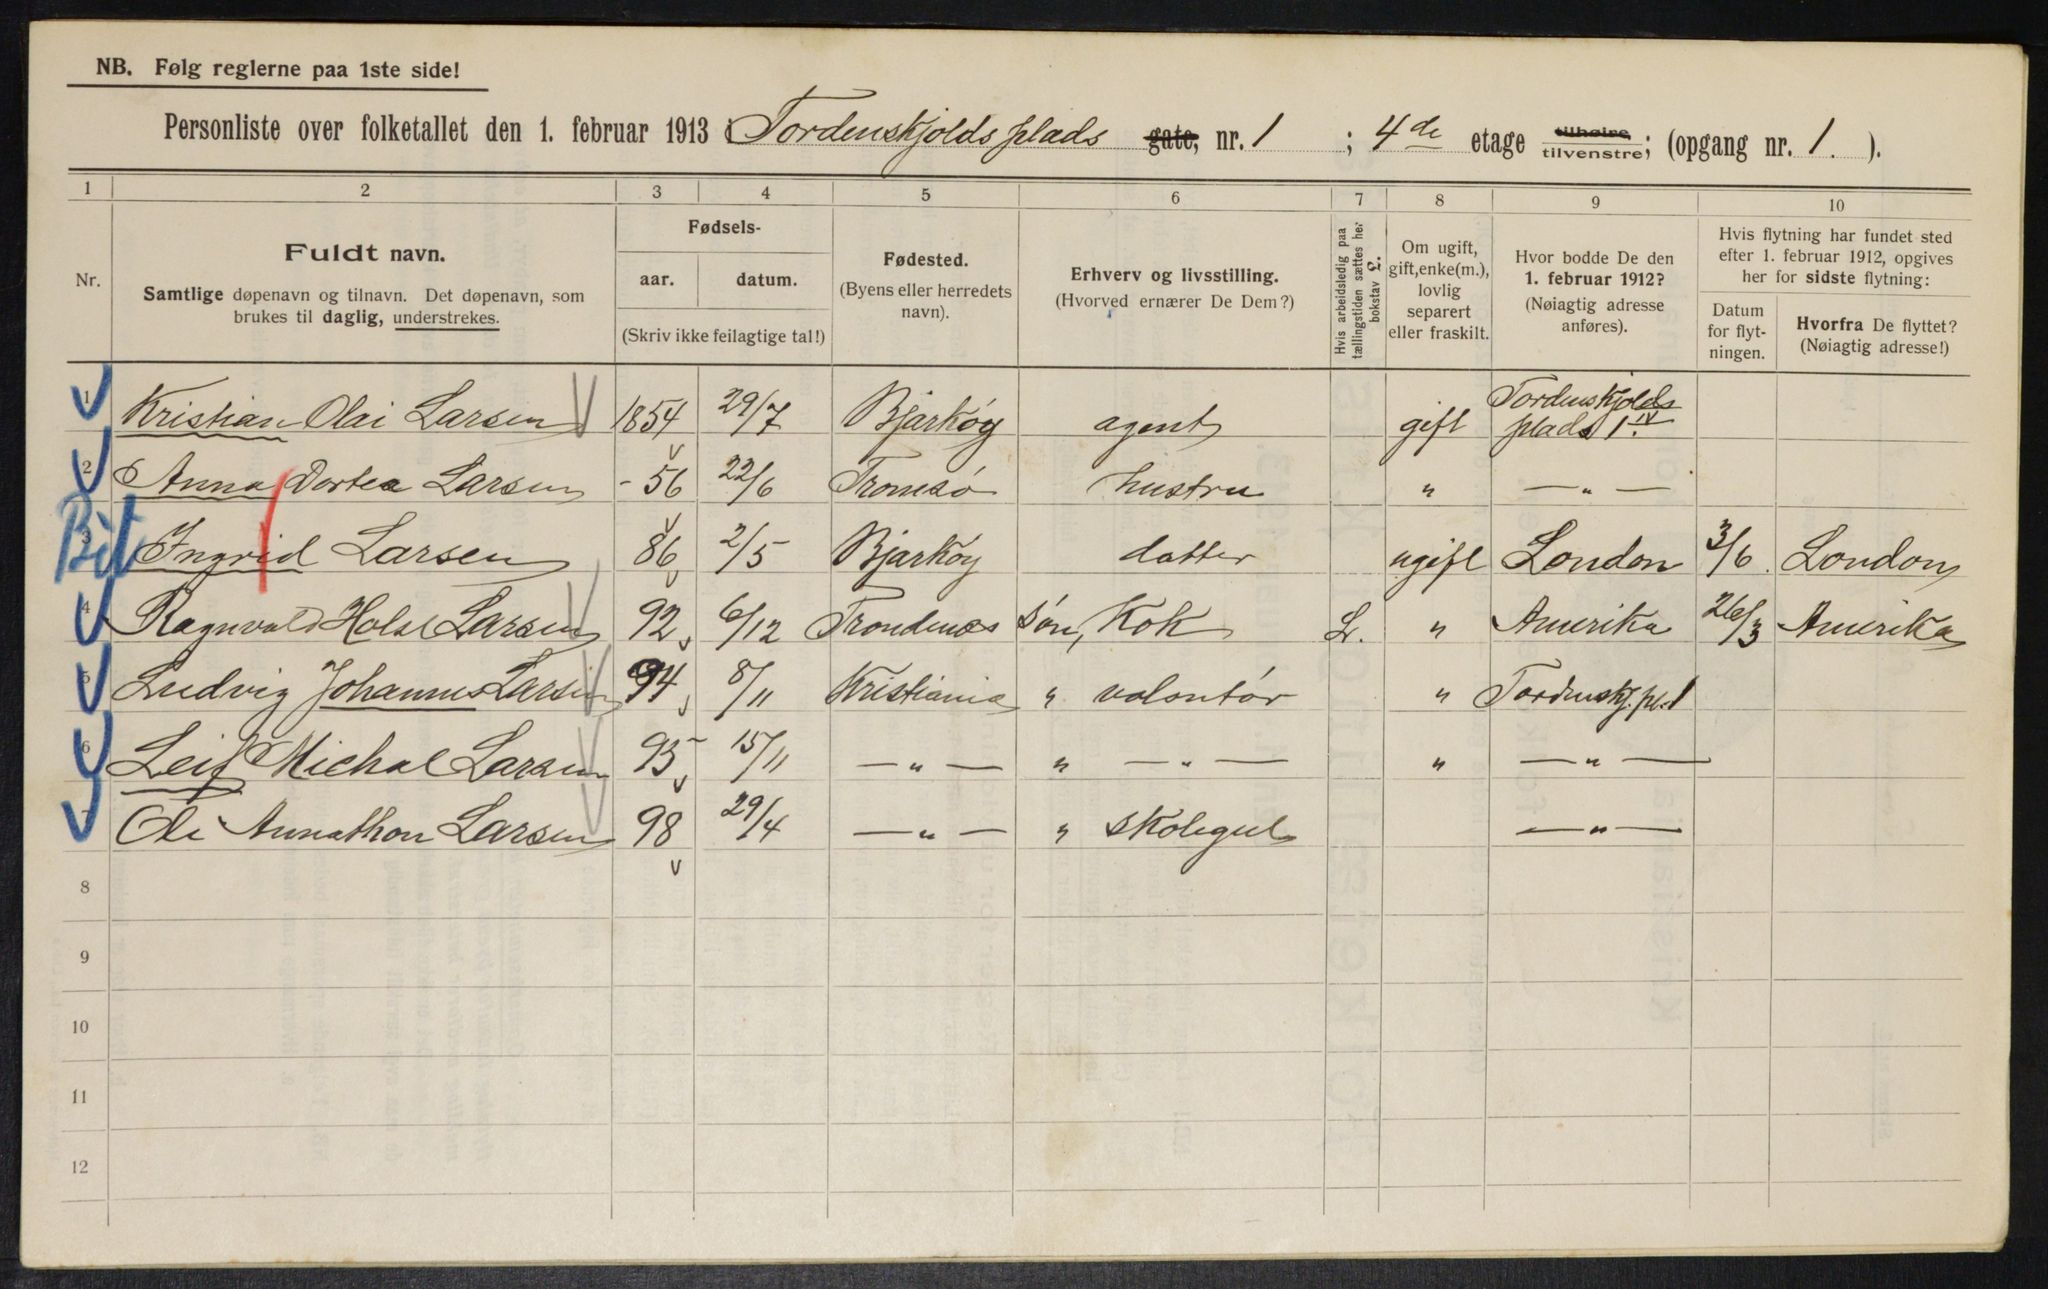 NB. Følg reglerne paa 1ste side!
Personliste over folketallet den 1. februar 1913 Tordenskjolds plads gate, nr. 1 ; 4de etage tilhøire tilvenstre; (opgang nr. 1. ).
1 2 3 4 5 6 7 8 9 10
Nr.
Fuldt navn.
Samtlige døpenavn og tilnavn. Det døpenavn, som
brukes til daglig, understrekes.
Fødsels-
aar. datum.
(Skriv ikke feilagtige tal!)
Fødested.
(Byens eller herredets
navn).
Erhverv og livsstilling.
(Hvorved ernærer De Dem?)
Hvis arbeidsledig paa
tællingstiden sættes her
bokstav L.
Om ugift,
gift, enke(m.),
lovlig
separert
eller fraskilt.
Hvor bodde De den
1. februar 1912?
(Nøiagtig adresse
anføres).
Hvis flytning har fundet sted
efter 1. februar 1912, opgives
her for sidste flytning:
Datum
for flyt-
ningen.
Hvorfra De flyttet?
(Nøiagtig adresse!)
1 Kristian Olai Larsen 1854 29/7 Bjarkøy agent gift Tordenskjolds plads 1 IV
2 Anna Dortea Larsen - 56 22/6 Tromsø hustru " — " —
3 Ingrid Larsen 86 2/5 Bjarkøy datter ugift London 3/6 London
4 Ragnvald Holst Larsen 92 6/12 Trondenes søn, Kok L. " Amerika 26/3 Amerika
5 Ludvig Johannes Larsen 94 8/11 Kristiania " volontør " Tordenskj. pl. 1
6 Leif Michal Larsen 95 15/11 — " — " — " — " — " —
7 Ole Annathon Larsen 98 29/4 — " — " skolegut — " —
8
9
10
11
12